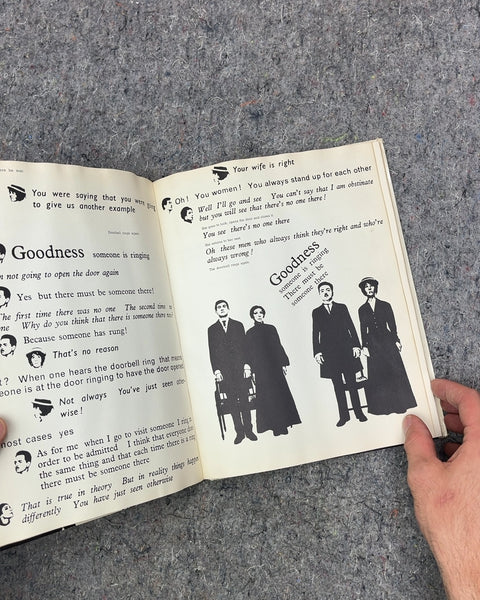 You were saying that you were going
to give us another example
Doorbell rings again
Goodness someone is ringing
not going to open the door again
Yes but there must be someone there!
The first time there was no one The second time no
one Why do you think that there is someone there
Because someone has rung!
That's no reason
? When one hears the doorbell ring that means
someone is at the door ringing to have the door opened
Not always You've just seen other-
wise!
most cases yes
As for me when I go to visit someone I ring in
order to be admitted I think that everyone does
the same thing and that each time there is a ring
there must be someone there
That is true in theory But in reality things happen
differently You have just seen otherwise
Your wife is right
Oh! You women! You always stand up for each other
Well I'll go and see You can't say that I am obstinate
but you will see that there's no one there!
She goes to look, opens the door and closes it
You see there's no one there
She returns to her seat
Oh these men who always think they're right and who're
always wrong!
The doorbell rings again
Goodness
someone is ringing
There must be
someone there